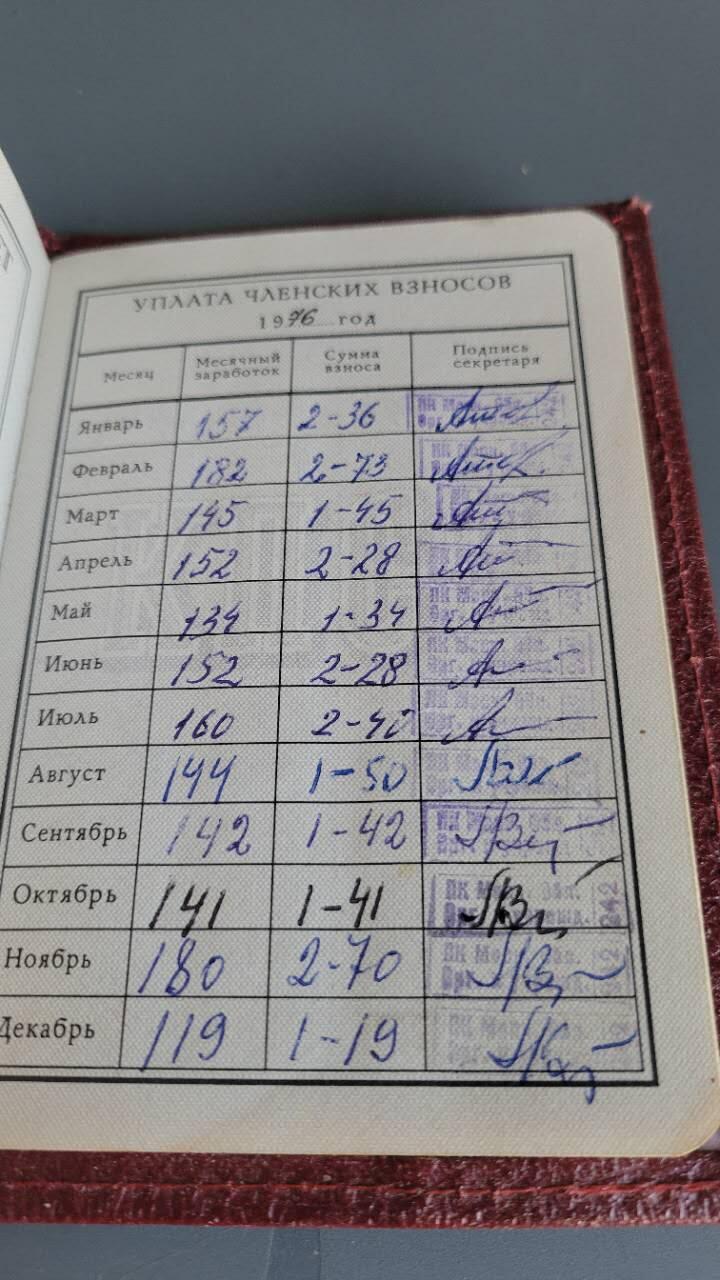 УПЛАТА ЧЛЕНСКИХ ВЗНОСОВ
1976 год
Месяц Месячный заработок Сумма взноса Подпись секретаря
Январь 157 2-36
Февраль 182 2-73
Март 145 1-45
Апрель 152 2-28
Май 134 1-34
Июнь 152 2-28
Июль 160 2-40
Август 144 1-50
Сентябрь 142 1-42
Октябрь 141 1-41
Ноябрь 180 2-70
Декабрь 119 1-19